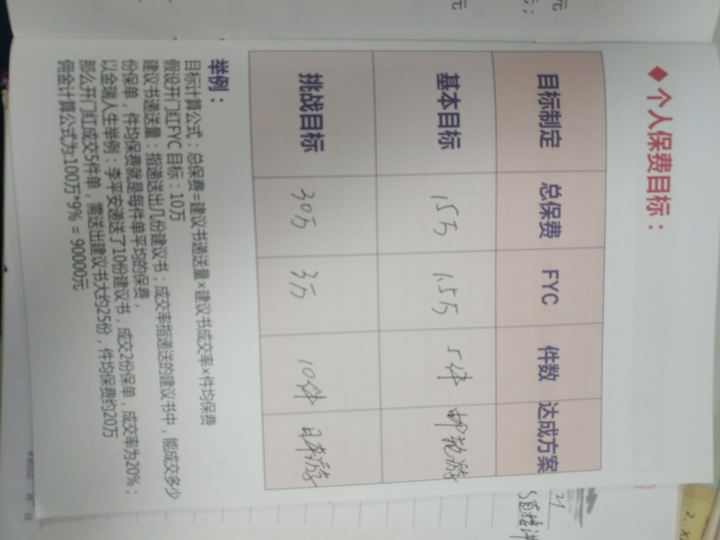 ◆个人保费目标：
目标制定 总保费 FYC 件数 达成方案
基本目标 15万 1.5万 5件 邮轮游
挑战目标 30万 3万 10件 日本游
举例：
目标计算公式：总保费=建议书递送量×建议书成交率×件均保费
假设开门红FYC目标：10万
建议书递送量：指递送出几份建议书；成交率指递送的建议书中，能成交多少
份保单，件均保费就是每件单平均的保费，
以金瑞人生举例：李平安递送了10份建议书，成交2份保单，成交率为20%；
那么开门红成交5件单，需送出建议书大约25份，件均保费约20万
佣金计算公式为:100万*9% = 90000元